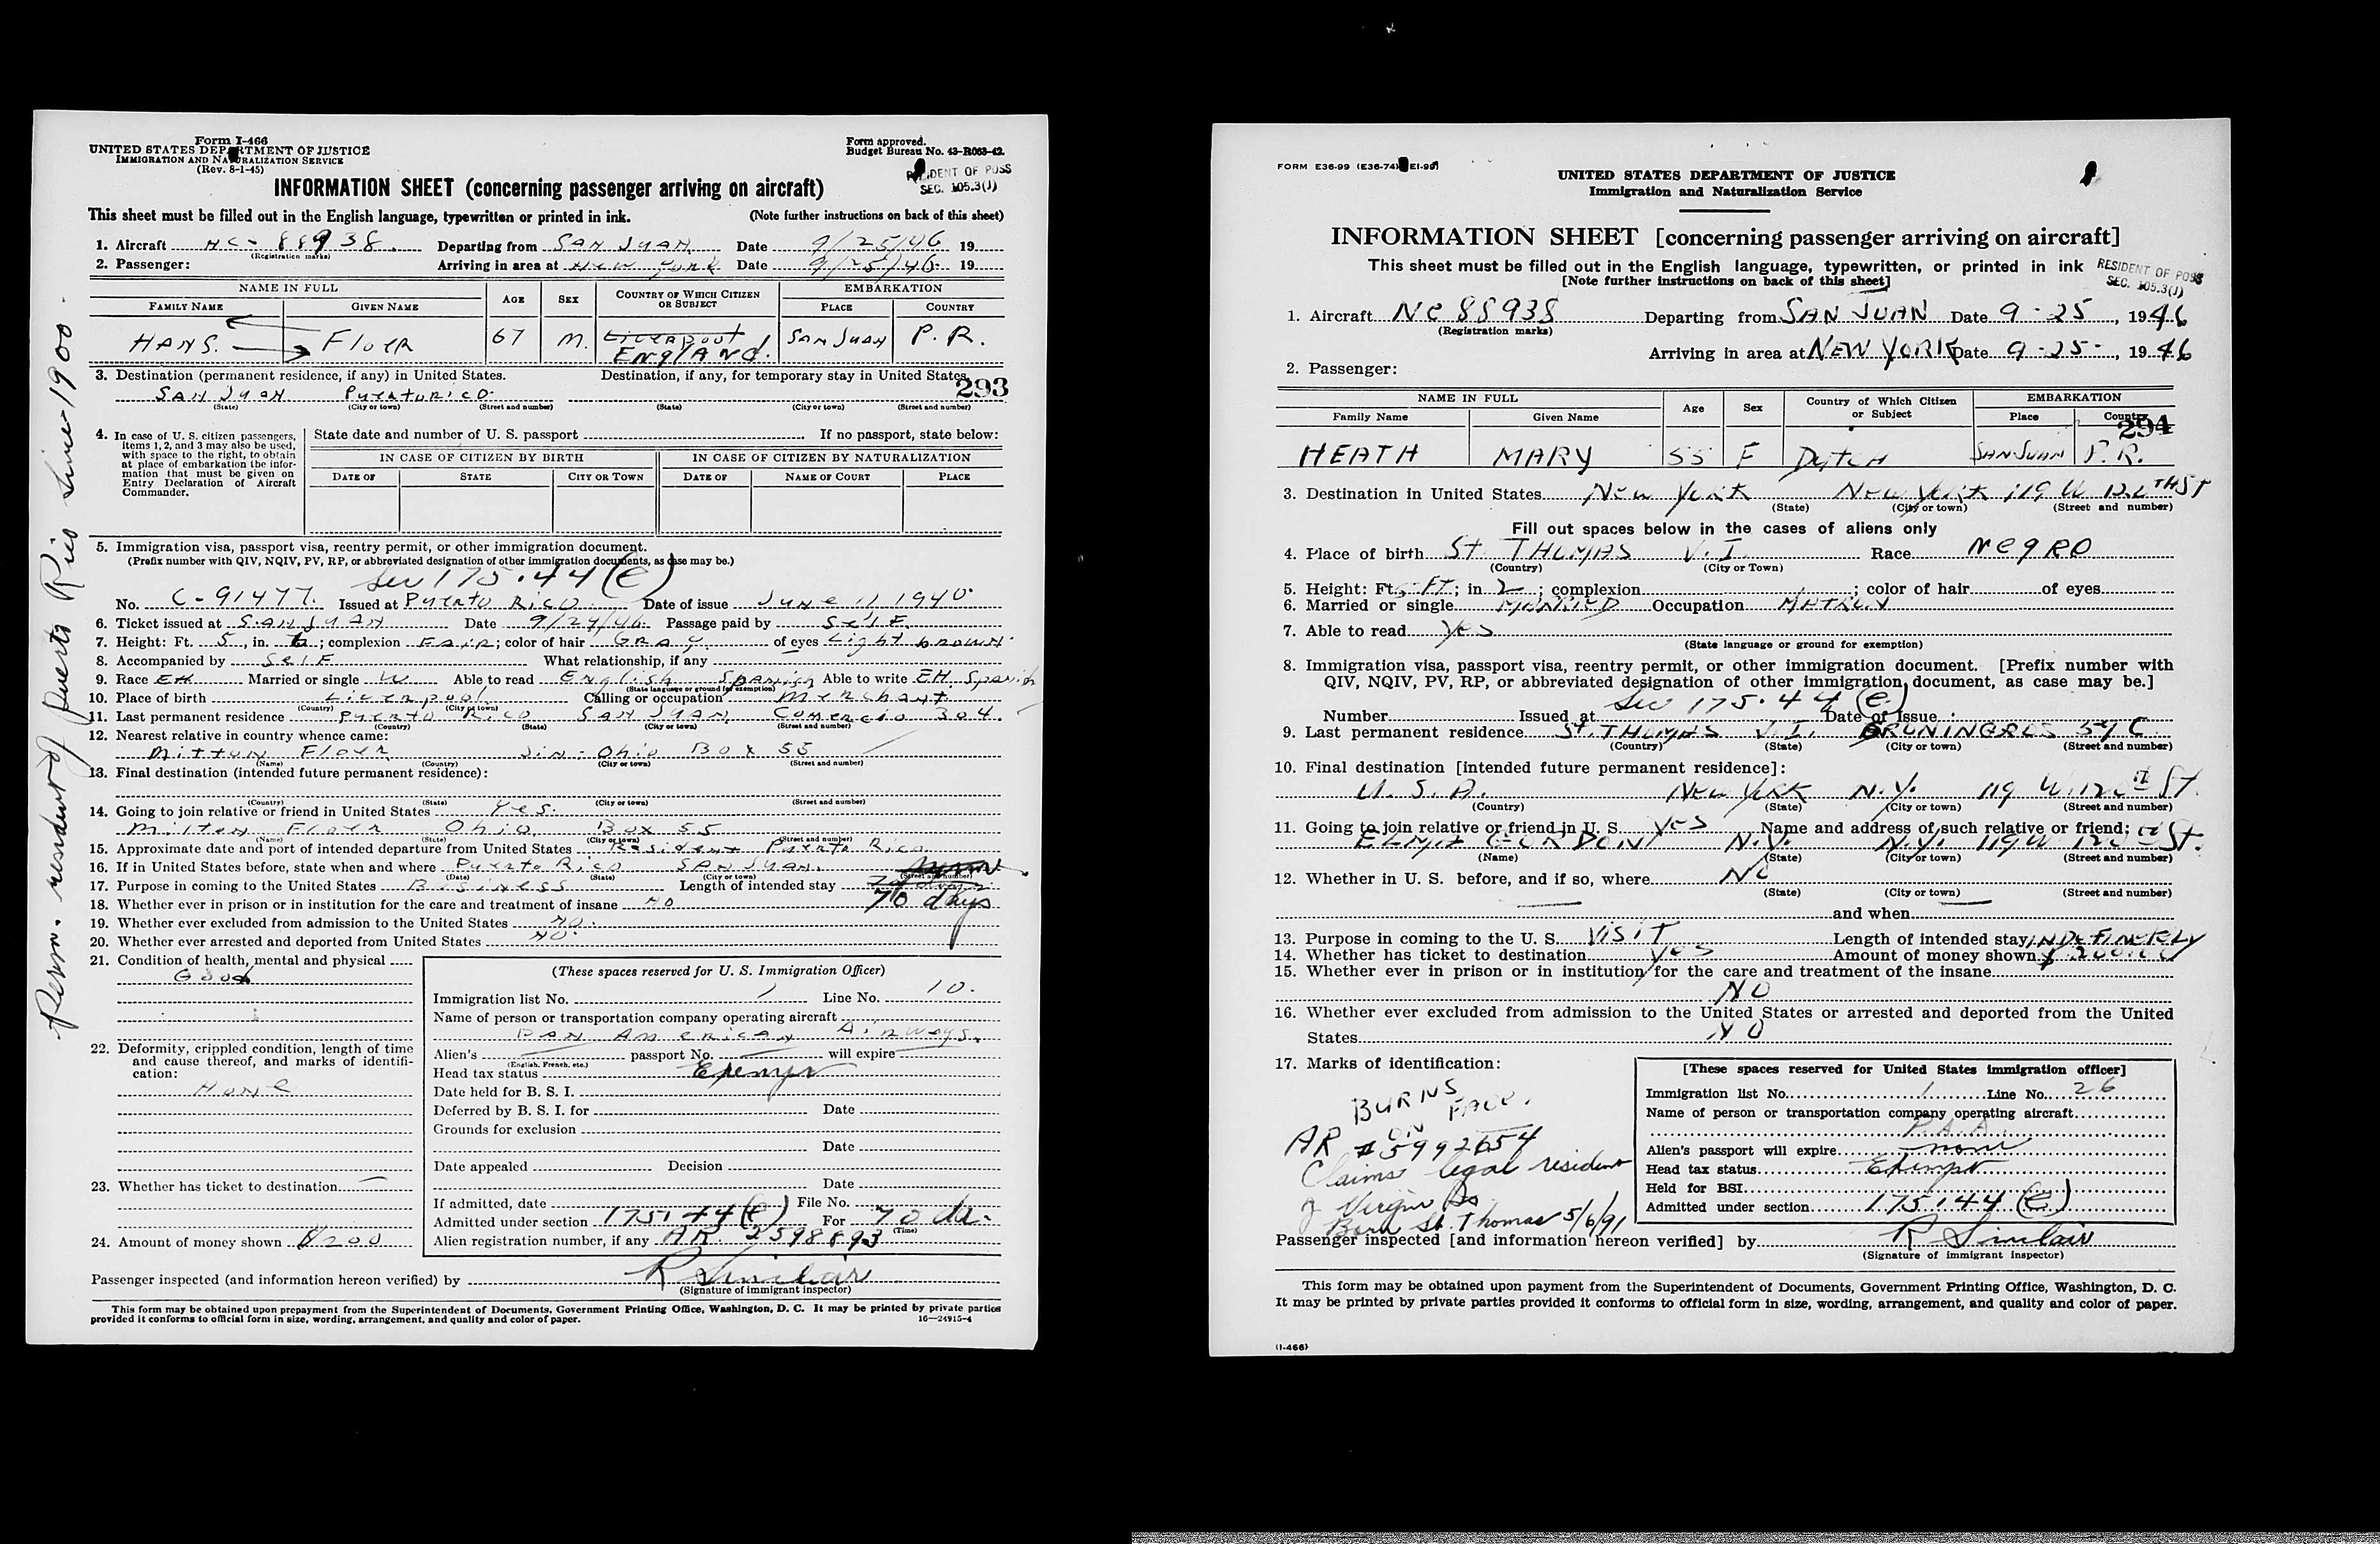 Form I-466
UNITED STATES DEPARTMENT OF JUSTICE
IMMIGRATION AND NATURALIZATION SERVICE
(Rev. 8-1-45)
Form approved.
Budget Bureau No. 43-R063-42.
RESIDENT OF POSS
SEC. 105.3(J)
INFORMATION SHEET (concerning passenger arriving on aircraft)
This sheet must be filled out in the English language, typewritten or printed in ink. (Note further instructions on back of this sheet)
1. Aircraft NC-88938. Departing from SAN JUAN Date 9/25/46 19
(Registration marks)
2. Passenger: Arriving in area at New York Date 9/25/46 19
NAME IN FULL AGE SEX COUNTRY OF WHICH CITIZEN OR SUBJECT EMBARKATION
FAMILY NAME GIVEN NAME PLACE COUNTRY
HANS. Floer 67 M. Liverpool England. San Juan P.R.
3. Destination (permanent residence, if any) in United States. Destination, if any, for temporary stay in United States
293
SAN JUAN Puerto Rico.
(State) (City or town) (Street and number) (State) (City or town) (Street and number)
4. In case of U. S. citizen passengers, items 1, 2, and 3 may also be used, with space to the right, to obtain at place of embarkation the information that must be given on Entry Declaration of Aircraft Commander.
State date and number of U. S. passport If no passport, state below:
IN CASE OF CITIZEN BY BIRTH IN CASE OF CITIZEN BY NATURALIZATION
DATE OF STATE CITY OR TOWN DATE OF NAME OF COURT PLACE
5. Immigration visa, passport visa, reentry permit, or other immigration document.
(Prefix number with QIV, NQIV, PV, RP, or abbreviated designation of other immigration documents, as case may be.)
Sec 175.44 (e)
No. C-91477. Issued at Puerto Rico. Date of issue June 11 1940.
6. Ticket issued at SAN JUAN Date 9/24/46. Passage paid by Self.
7. Height: Ft. 5, in. 6; complexion Fair; color of hair Gray of eyes Light brown.
8. Accompanied by Self What relationship, if any
9. Race EH Married or single W Able to read English Spanish Able to write EH. Spanish
(State language or ground for exemption)
10. Place of birth Liverpool Calling or occupation Merchant
(Country) (City or town)
11. Last permanent residence Puerto Rico SAN JUAN Comercio 304.
(Country) (State) (City or town) (Street and number)
12. Nearest relative in country whence came:
Floer Ohio Box 55
(Name) (Country) (City or town) (Street and number)
13. Final destination (intended future permanent residence):
(Country) (State) (City or town) (Street and number)
14. Going to join relative or friend in United States Yes.
Milton Floer Ohio Box 55
(Name) (State) (City or town) (Street and number)
15. Approximate date and port of intended departure from United States Resident Puerto Rico
16. If in United States before, state when and where Puerto Rico SAN JUAN.
(Date) (State) (City or town) (Street and number)
17. Purpose in coming to the United States Business Length of intended stay
70 days
18. Whether ever in prison or in institution for the care and treatment of insane NO
19. Whether ever excluded from admission to the United States NO.
20. Whether ever arrested and deported from United States NO.
21. Condition of health, mental and physical
Good
22. Deformity, crippled condition, length of time and cause thereof, and marks of identification:
None
23. Whether has ticket to destination
24. Amount of money shown $200
(These spaces reserved for U. S. Immigration Officer)
Immigration list No. 1 Line No. 10.
Name of person or transportation company operating aircraft
PAN American Airways.
Alien's passport No. will expire
(English, French, etc.)
Head tax status Exempt
Date held for B. S. I.
Deferred by B. S. I. for Date
Grounds for exclusion
Date
Date appealed Decision
Date
If admitted, date File No.
Admitted under section 175.44(e) For 70 da.
(Time)
Alien registration number, if any AR 2598893
Passenger inspected (and information hereon verified) by R Sinclair
(Signature of immigrant inspector)
This form may be obtained upon prepayment from the Superintendent of Documents, Government Printing Office, Washington, D. C. It may be printed by private parties
provided it conforms to official form in size, wording, arrangement, and quality and color of paper. 16—24915-4
Perm. resident of Puerto Rico since 1900.
FORM E36-99 (E36-74) EI-99)
UNITED STATES DEPARTMENT OF JUSTICE
Immigration and Naturalization Service
INFORMATION SHEET [concerning passenger arriving on aircraft]
This sheet must be filled out in the English language, typewritten, or printed in ink
[Note further instructions on back of this sheet]
RESIDENT OF POSS
SEC. 105.3(J)
1. Aircraft NC 88938 Departing from SAN JUAN Date 9-25, 1946
(Registration marks)
Arriving in area at NEW YORK Date 9-25-, 1946
2. Passenger:
NAME IN FULL Age Sex Country of Which Citizen or Subject EMBARKATION
Family Name Given Name Place Country
294
HEATH MARY 55 F Dutch SAN JUAN P.R.
3. Destination in United States New York New York 119 W 120 TH ST
(State) (City or town) (Street and number)
Fill out spaces below in the cases of aliens only
4. Place of birth St. THOMAS V.I. Race NEGRO
(Country) (City or Town)
5. Height: Ft. 5 FT; in 2; complexion; color of hair of eyes
6. Married or single MARRIED Occupation MATRON
7. Able to read Yes
(State language or ground for exemption)
8. Immigration visa, passport visa, reentry permit, or other immigration document. [Prefix number with
QIV, NQIV, PV, RP, or abbreviated designation of other immigration document, as case may be.]
Sec 175.44 (e)
Number Issued at Date of Issue
9. Last permanent residence St. THOMAS V.I. 59 C
(Country) (State) (City or town) (Street and number)
10. Final destination [intended future permanent residence]:
U.S.A. New York N.Y. 119 W. 120th St.
(Country) (State) (City or town) (Street and number)
11. Going to join relative or friend in U. S. Yes Name and address of such relative or friend;
GORDON N.Y. N.Y. 119 W 120 St.
(Name) (State) (City or town) (Street and number)
12. Whether in U. S. before, and if so, where No
(State) (City or town) (Street and number)
and when
13. Purpose in coming to the U. S. VISIT Length of intended stay INDEFINITELY
14. Whether has ticket to destination Yes Amount of money shown $200.00
15. Whether ever in prison or in institution for the care and treatment of the insane
NO
16. Whether ever excluded from admission to the United States or arrested and deported from the United
States NO
17. Marks of identification:
BURNS ON FACE.
AR #5992654
Claims legal resident
of Virgin Is
Born St. Thomas 5/6/91
[These spaces reserved for United States immigration officer]
Immigration list No. 1 Line No. 26
Name of person or transportation company operating aircraft
P.A.A.
Alien's passport will expire none
Head tax status Exempt
Held for BSI
Admitted under section 175.44 (e)
Passenger inspected [and information hereon verified] by R Sinclair
(Signature of immigrant inspector)
This form may be obtained upon payment from the Superintendent of Documents, Government Printing Office, Washington, D. C.
It may be printed by private parties provided it conforms to official form in size, wording, arrangement, and quality and color of paper.
(I-466)